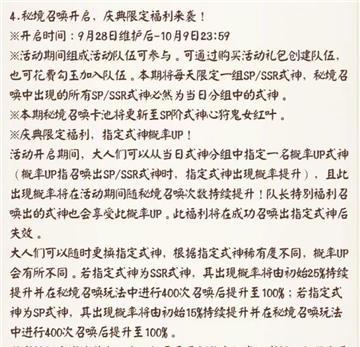 4.秘境召唤开启，庆典限定福利来袭！
※开启时间：9月28日维护后-10月9日23:59
※活动期间组成活动队伍可参与。可通过购买活动礼包创建队伍，
也可花费勾玉加入队伍。本期将每天限定一组SP/SSR式神，秘境召
唤中出现的所有SP/SSR式神必然为当日分组中的式神。
※本期秘境召唤卡池将更新至SP阶式神心狩鬼女红叶。
※庆典限定福利，指定式神概率UP！
活动开启期间，大人们可以从当日式神分组中指定一名概率UP式神
（概率UP指召唤出SP/SSR式神时，指定式神出现概率提升），且此
出现概率将在活动期间随秘境召唤次数持续提升！队长特别福利召
唤出的式神也会享受此概率UP。此福利将在成功召唤出指定式神后
失效。
大人们可以随时更换指定式神，根据指定式神稀有度不同，概率UP
会有所不同。若指定式神为SSR式神，其出现概率将由初始25%持续
提升并在秘境召唤玩法中进行400次召唤后提升至100%；若指定式
神为SP式神，其出现概率将由初始15%持续提升并在秘境召唤玩法
中进行400次召唤后提升至100%。